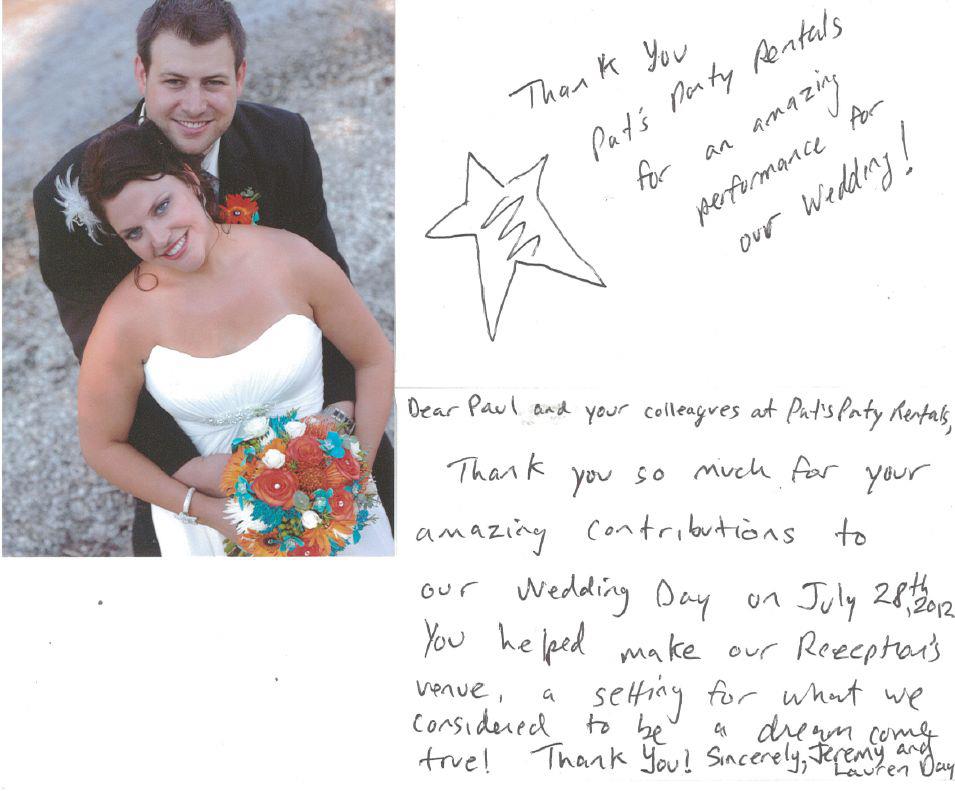 Thank You
Pat's Party Rentals
for an amazing
performance for
our Wedding!
Dear Paul and your colleagues at Pat's Party Rentals,
Thank you so much for your
amazing contributions to
our Wedding Day on July 28th, 2012
You helped make our Reception's
venue, a setting for what we
considered to be a dream come
true! Thank You! Sincerely, Jeremy and
Lauren Day